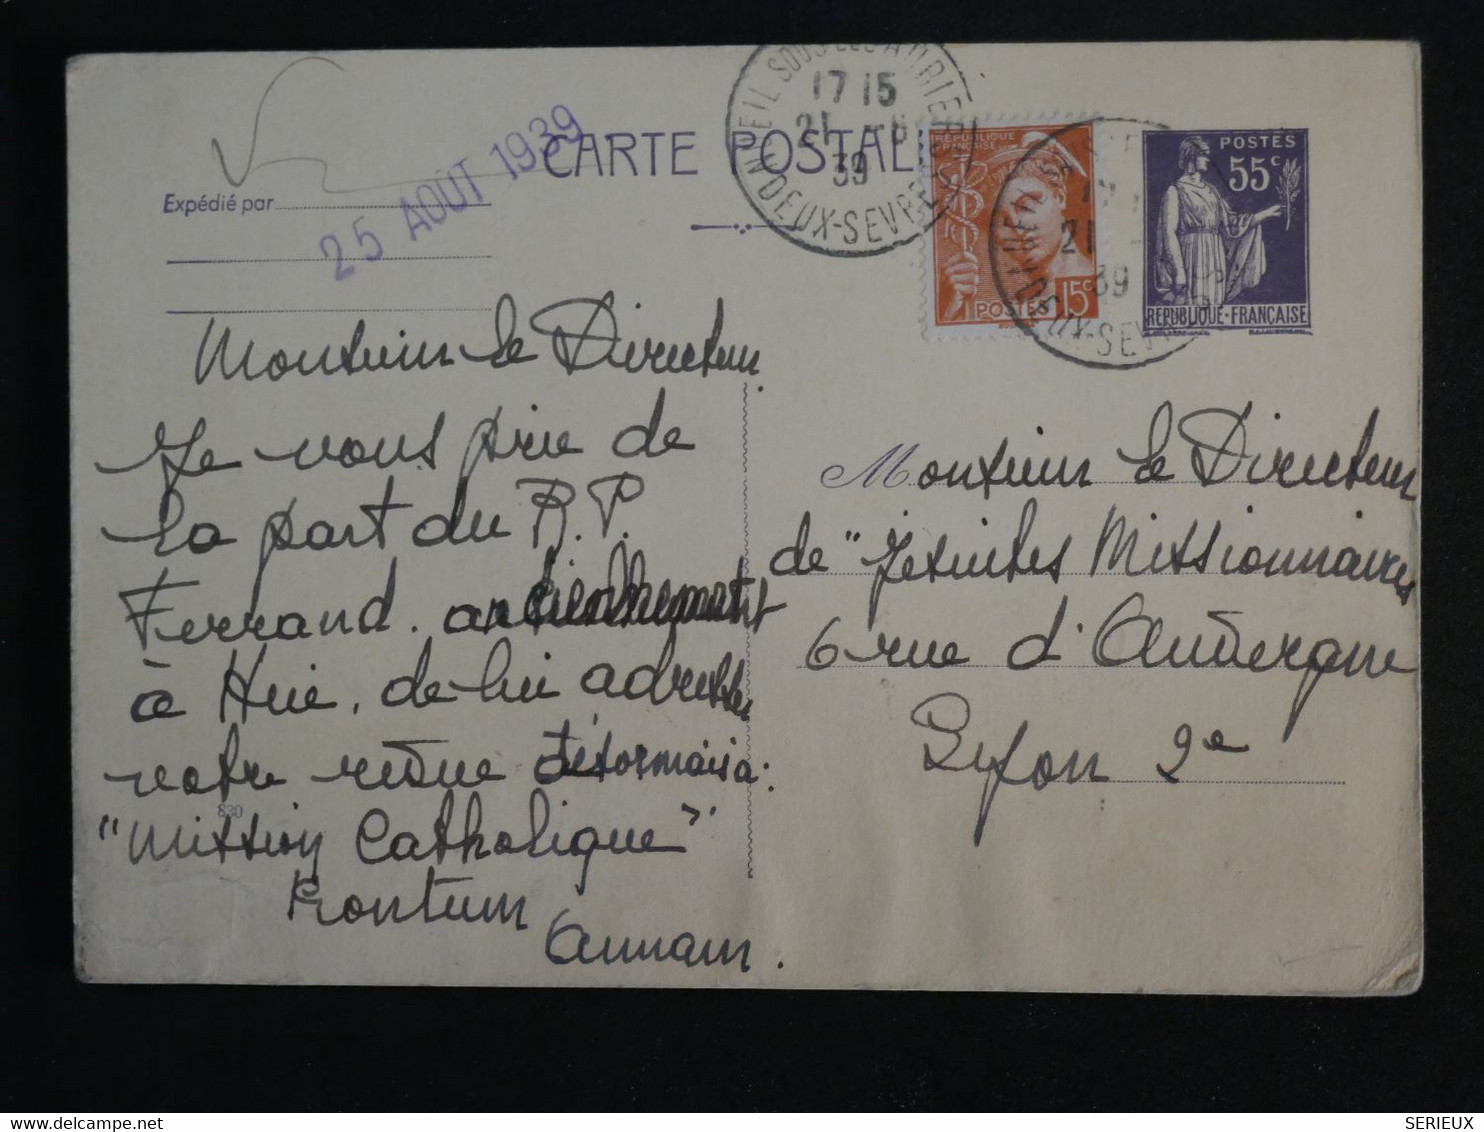 25 AOÛT 1939
CARTE POSTALE
Expédié par
NUEIL SOUS LES AUBIERS
17 15
21 - 8
39
DEUX-SEVRES
REPUBLIQUE
FRANÇAISE
POSTES 15c
21
39
POSTES
55c
REPUBLIQUE-FRANÇAISE
Monsieur le Directeur
Je vous prie de
la part du R. P.
Ferrand. anciennement
à Hué, de lui adresser
votre revue désormais à:
830
"Mission Catholique"
Kontum
Annam.
Monsieur le Directeur
de "Jésuites Missionnaires
6 rue d'Auvergne
Lyon 2e
SERIEUX